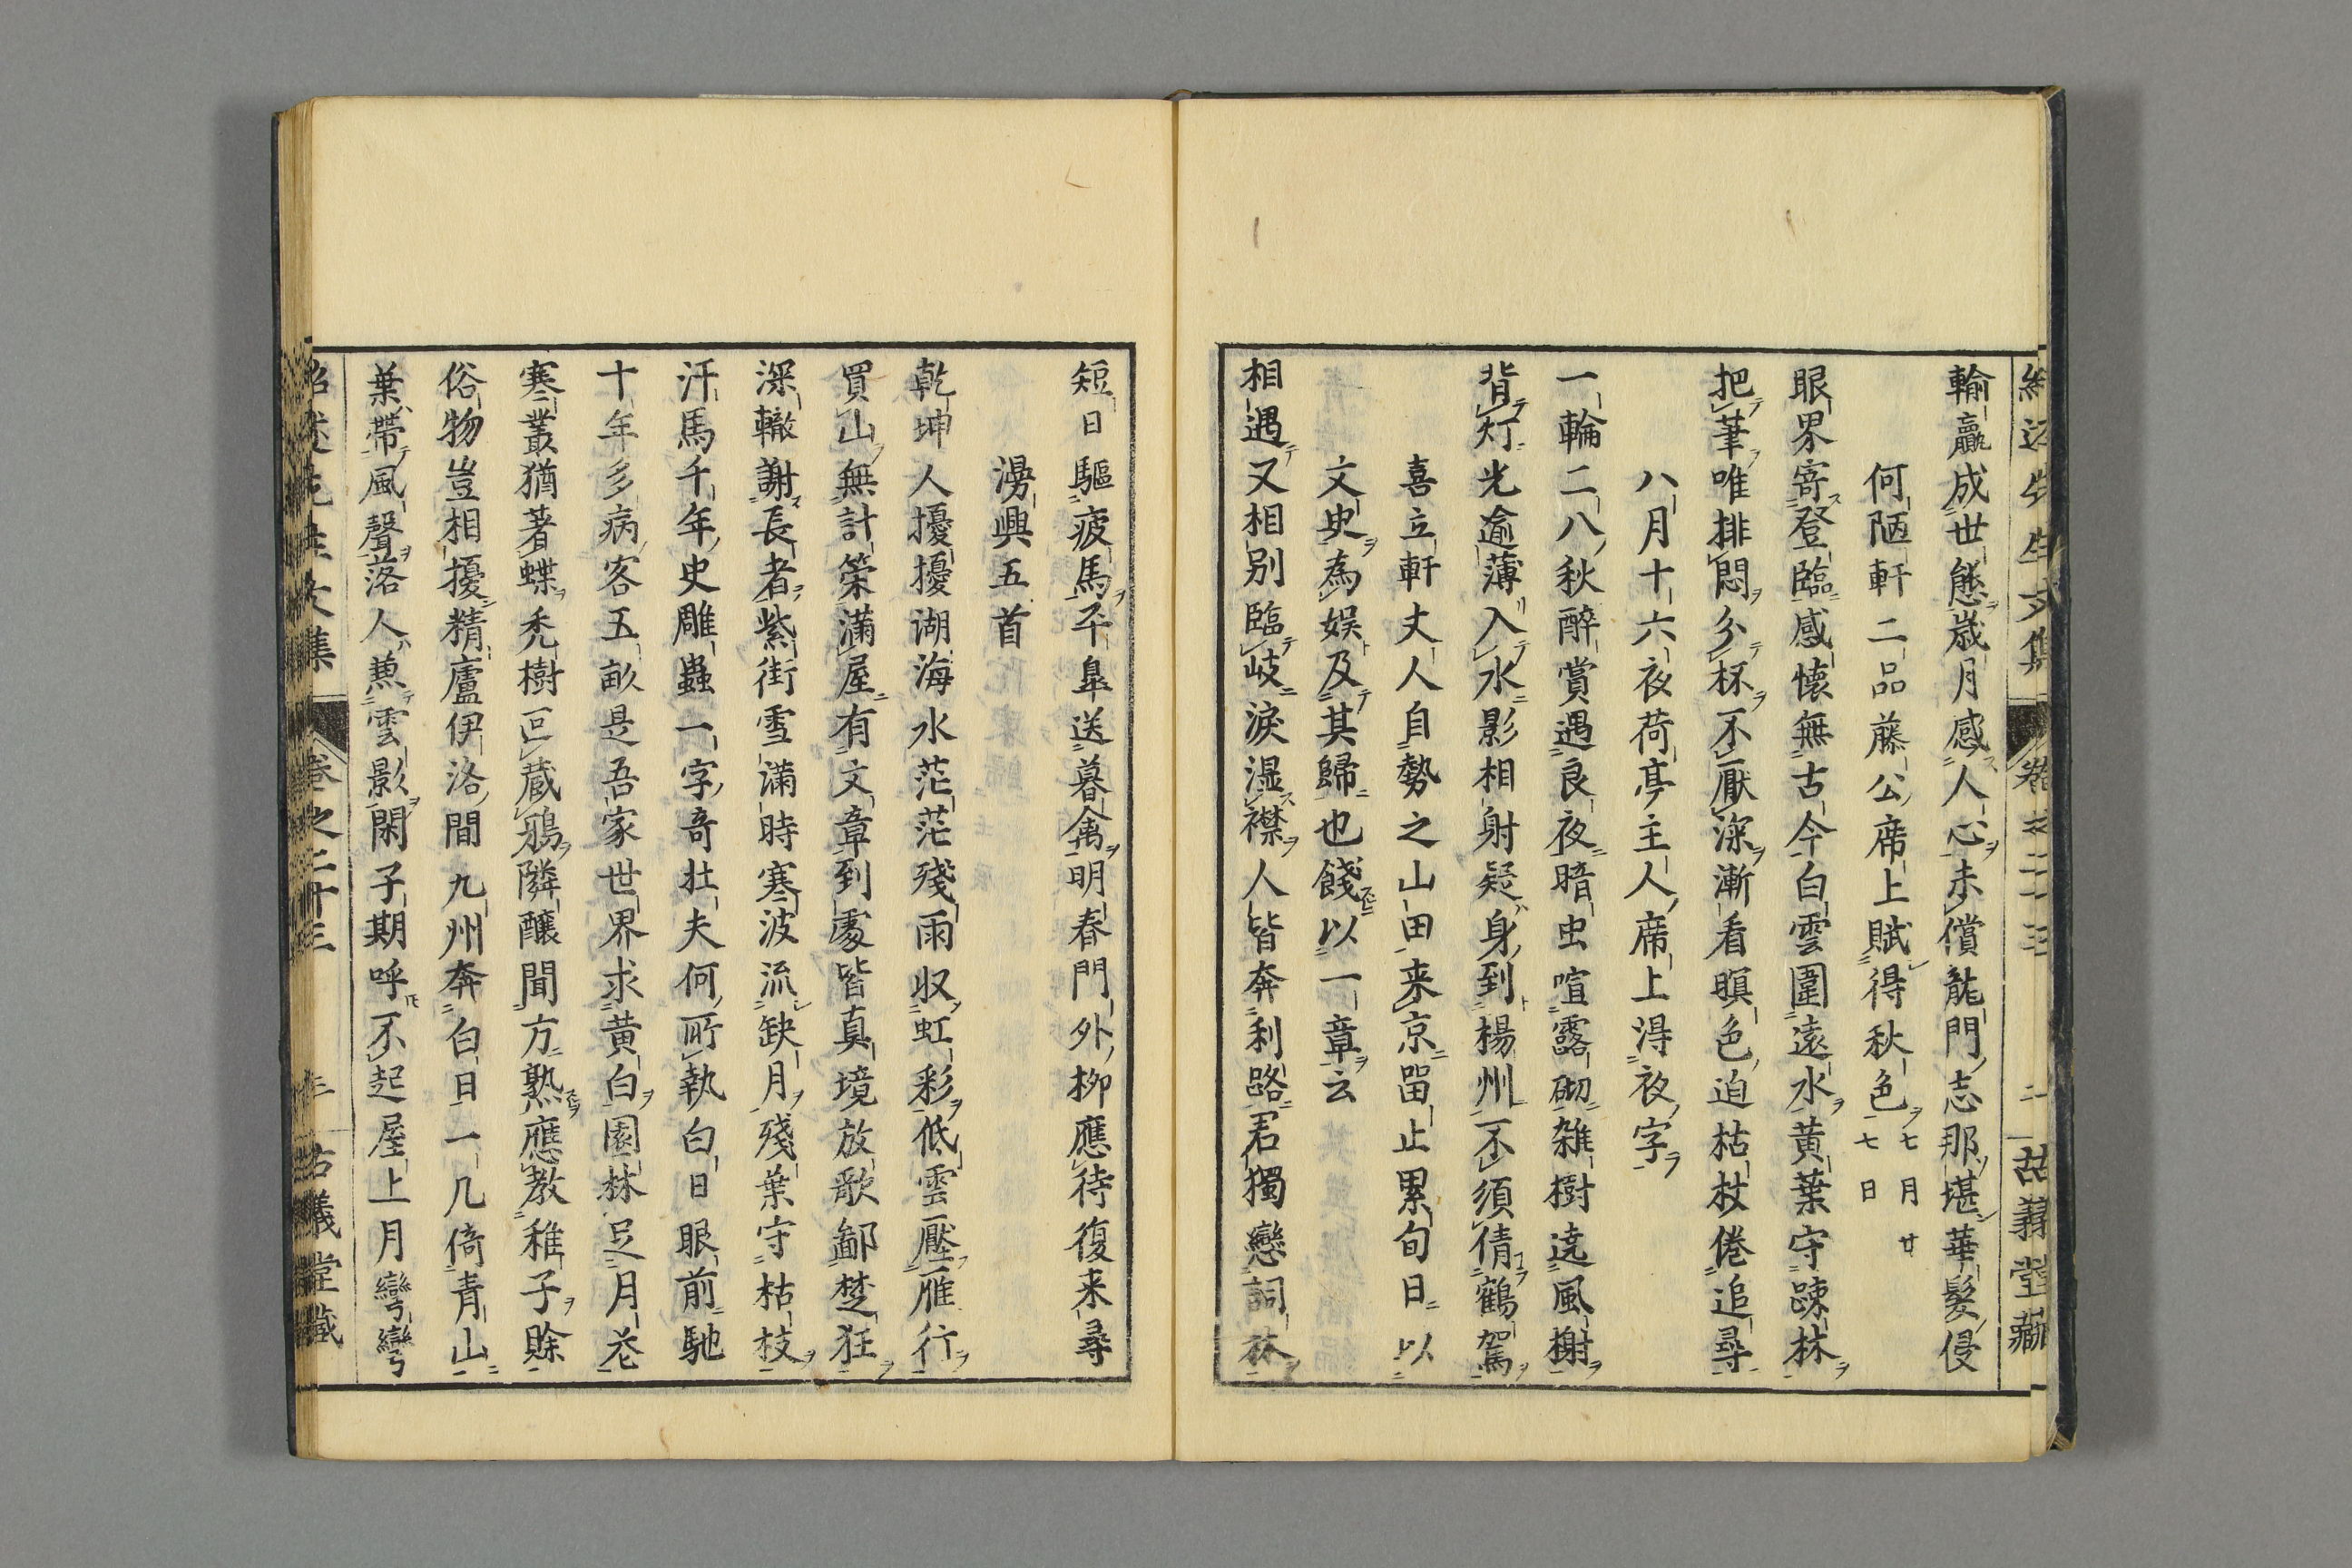 輸贏成世態歳月感人心未償龍門志那堪華髮侵
何陋軒二品藤公席上賦得秋色七月廿七日
眼界寄登臨感懷無古今白雲圍遠水黃葉守踈林
把筆唯排悶分杯不厭深漸看瞑色迫枯杖倦追尋
八月十六夜荷亭主人席上得夜字
一輪二八秋醉賞遇良夜暗虫喧露砌雑樹遶風榭
背灯光逾薄入水影相射疑身到楊州不須倩鶴駕
喜立軒丈人自勢之山田来京畄止累旬日以
文史為娯及其歸也餞以一章云
相遇又相別臨岐淚湿襟人皆奔利路君獨戀詞林
短日驅疲馬平皐送暮禽明春門外柳應待復来尋
漫興五首
乾坤人擾擾湖海水茫茫殘雨収虹彩低雲壓雁行
買山無計策滿屋有文章到處皆真境放歌鄙楚狂
深轍謝長者紫街雪滿時寒波流缺月殘葉守枯枝
汗馬千年史雕蟲一字奇壮夫何所執白日眼前馳
十年多病客五畝是吾家世界求黃白園林足月花
寒叢猶著蝶禿樹叵蔵鴉隣釀聞方熟應教稚子賒
俗物豈相擾精廬伊洛間九州奔白日一几倚青山
葉帶風聲落人兼雲影閑子期呼不起屋上月彎彎
紹述先生文集 卷之二十三 三 古義堂藏